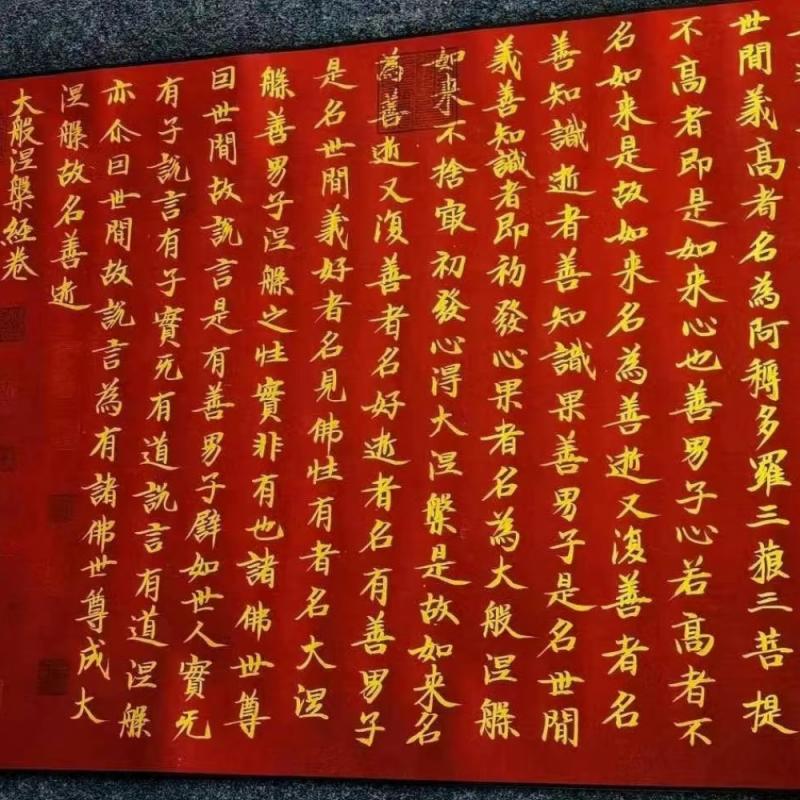 世間義高者名為阿耨多羅三藐三菩提
不高者即是如来心也善男子心若高者不
名如来是故如来名為善逝又復善者名
善知識逝者善知識果善男子是名世間
義善知識者即初發心果者名為大般涅槃
如来不捨㝡初發心得大涅槃是故如来名
為善逝又復善者名好逝者名有善男子
是名世間義好者名見佛性有者名大涅
槃善男子涅槃之性實非有也諸佛世尊
囙世間故說言是有善男子譬如世人實无
有子說言有子實无有道說言有道涅槃
亦尒囙世間故說言為有諸佛世尊成大
涅槃故名善逝
大般涅槃経卷